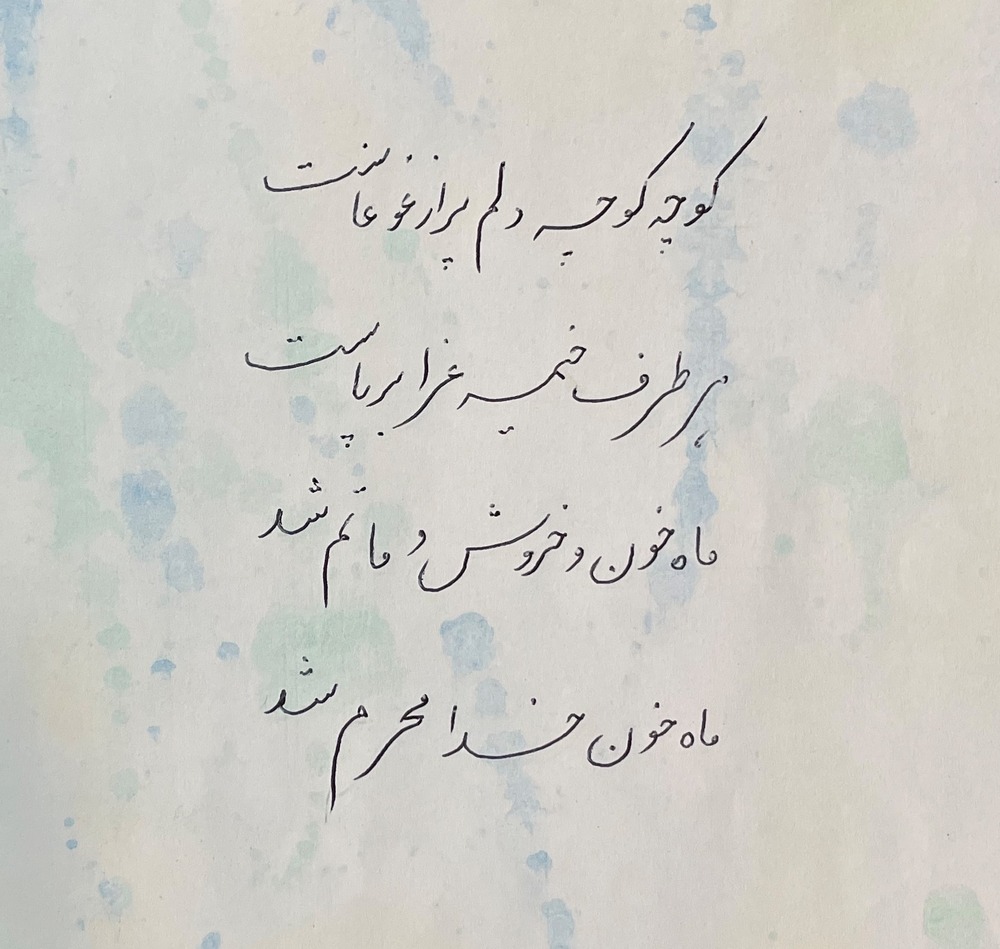 کوچه کوچه دلم پر از غوغاست
هر طرف خیمه عزا برپاست
ماه خون و خروش و ماتم شد
ماه خون خدا محرم شد